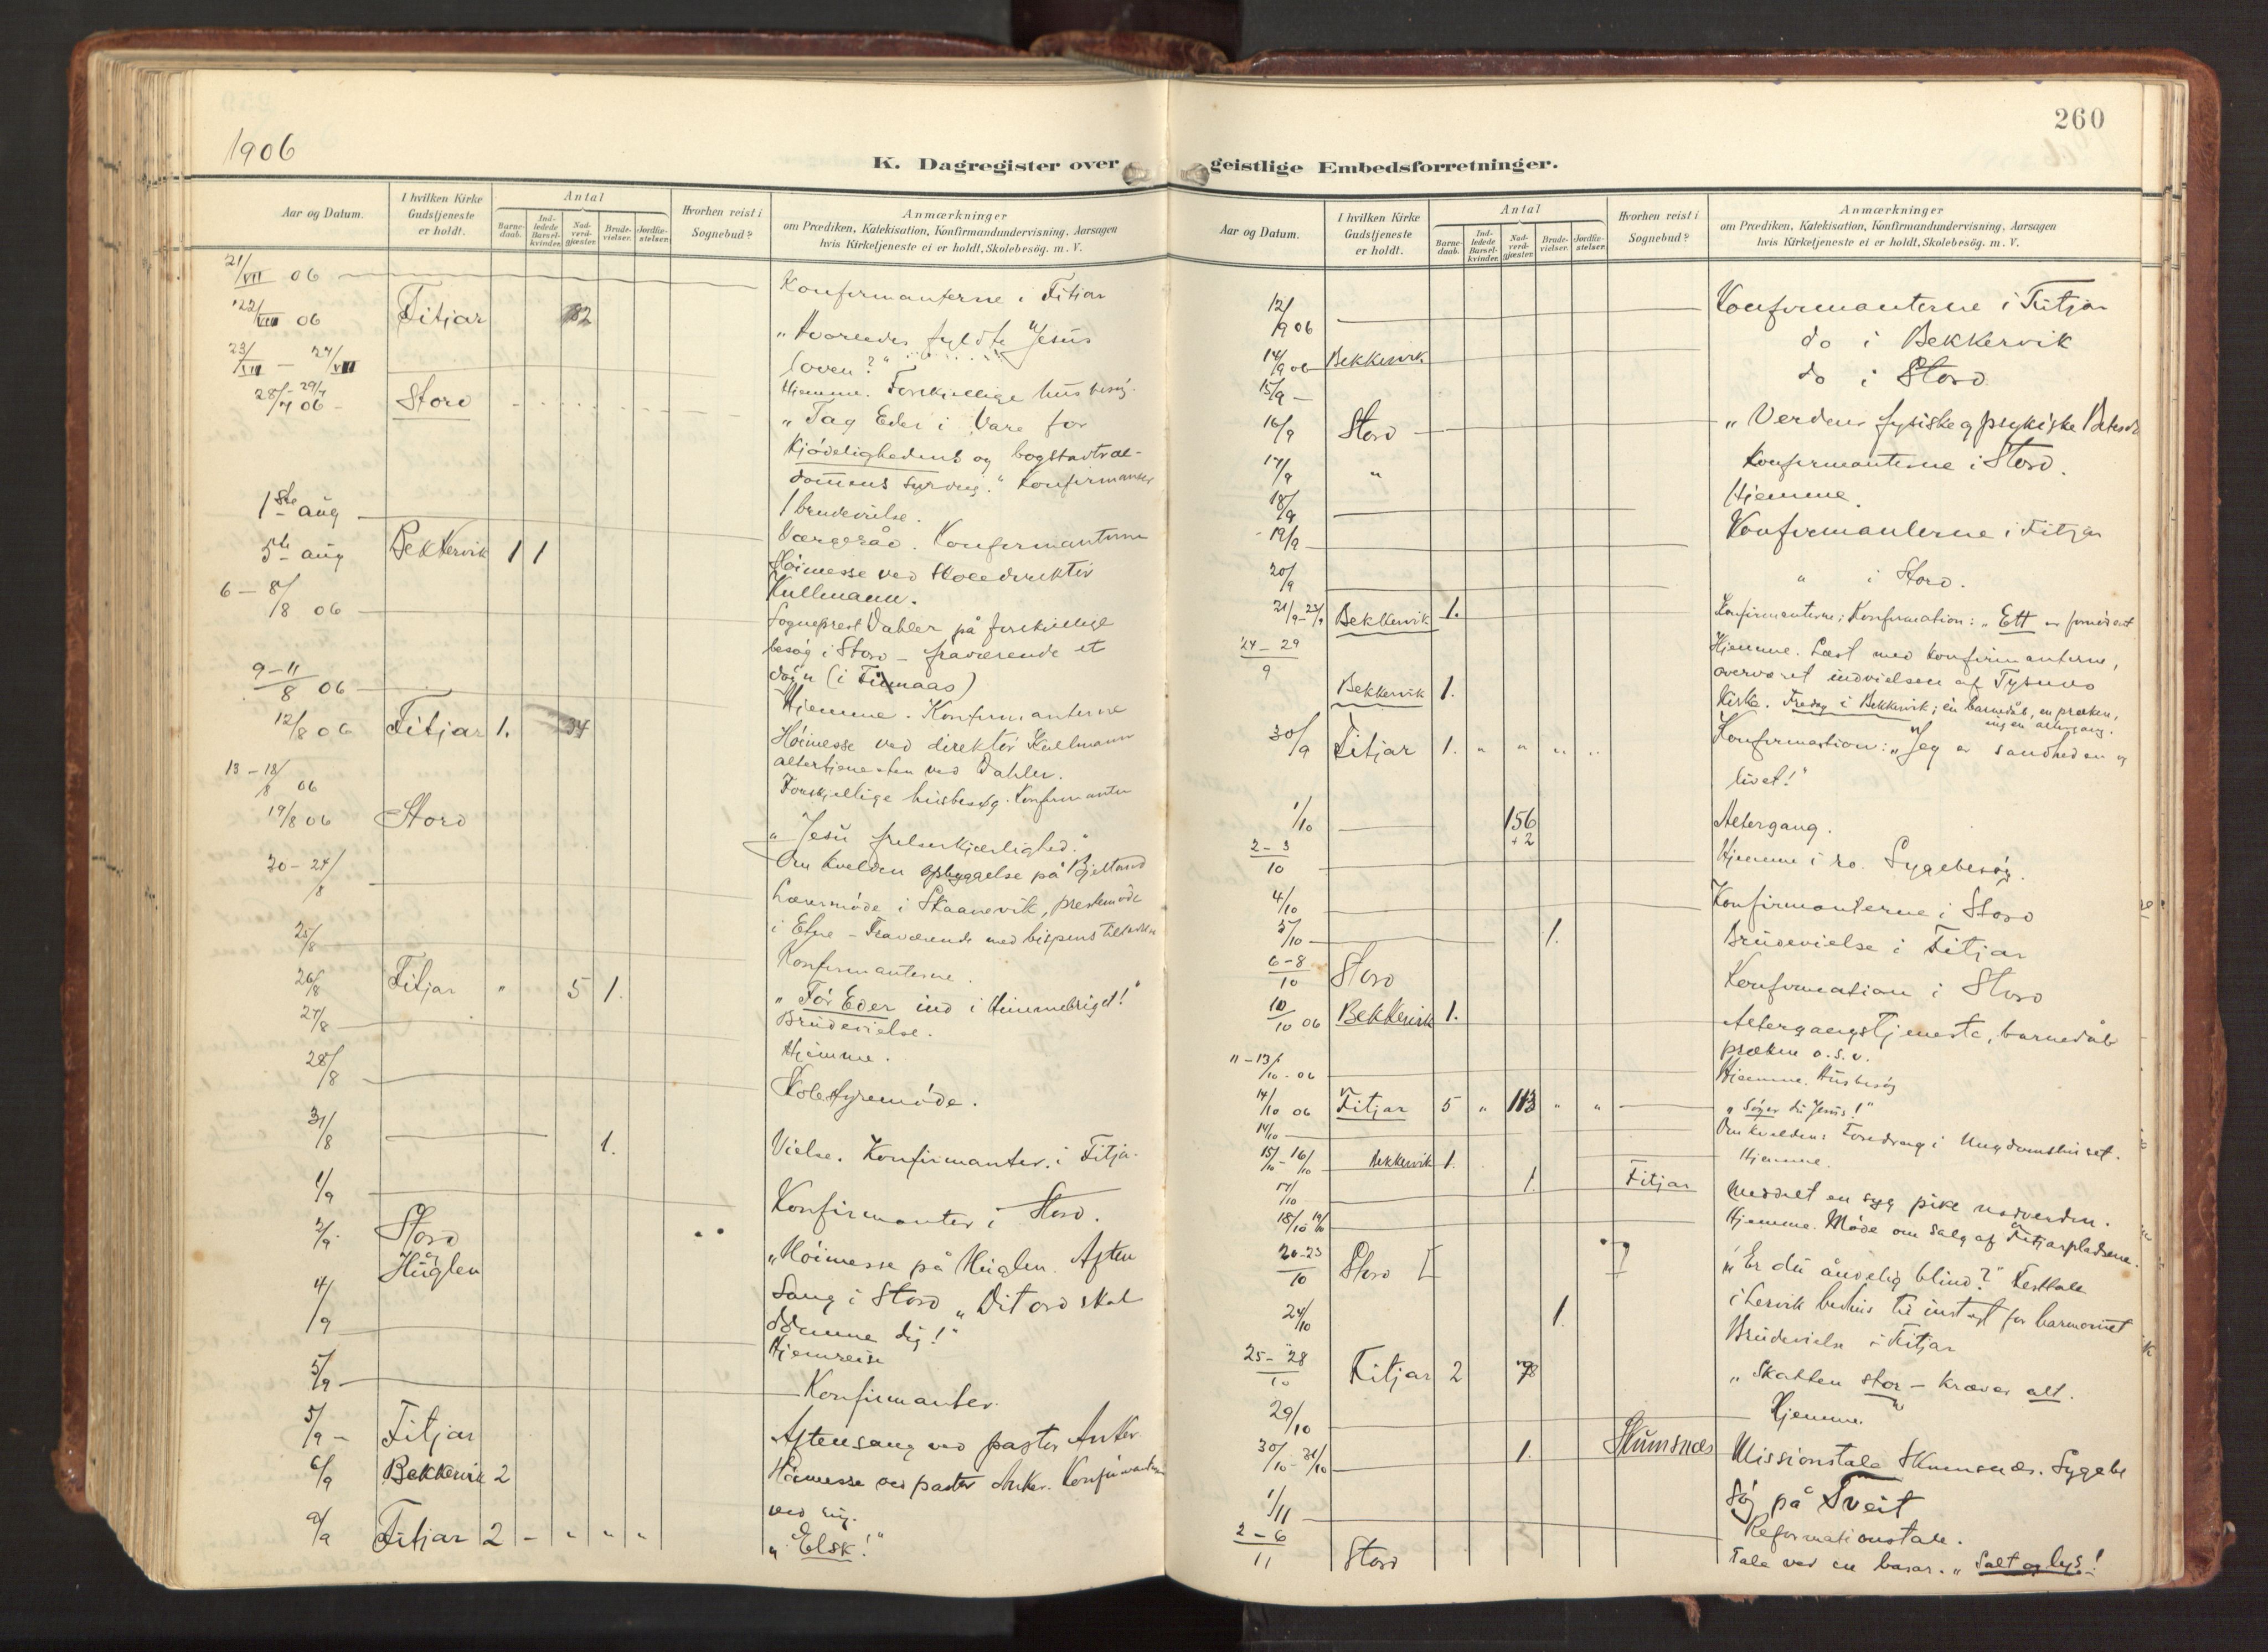 1906
K. Dagregister over
Aar og Datum.
I hvilken Kirke Gudstjeneste er holdt.
Antal
Barnedaab.
Indledede Barselkvinder.
Nadverdgjæster.
Brudevielser.
Jordfæstelser.
Hvorhen reist i Sognebud?
Anmærkninger
om Prædiken, Katekisation, Konfirmandundervisning, Aarsagen
hvis Kirketjeneste ei er holdt, Skolebesøg. m. V.
21/VII 06 Konfirmanterne i Fitjar
22/VII 06 Fitjar 82 "Hvorledes fyldte Jesus
loven?"
23/VII — 24/VII Hjemme. Forskjellige husbesøg.
28/7 - 29/7 06 - Stord "Tag Eder i Vare for
Kjødelighedens og bogstavtræl-
dommens surdeig." Konfirmanter
1 brudevielse.
1ste aug Værgeråd. Konfirmanterne
5te aug Bekkervik 1 1 Höimesse ved Skoledirektör
Kullmann.
6 — 8/8 06 Sogneprest Dahler på forskjellige
besøg i Stord — fraværende et
døgn
9-11/8 06 Hjemme. Konfirmanterne
12/8 06 Fitjar 1. 34 Höimesse ved direktör Kullmann
altertjenesten ved Dahler.
13 — 18/8 06 Forskjellige husbesøg. Konfirmanter
19/8 06 Stord "Jesu frelserkjærlighed."
Om kvelden opbyggelse på
20 — 24/8 Lærermöde i Skaanevik, prestemöde
i Etne — Fraværende med bispens tilladelse
25/8 Konfirmanterne.
26/8 Fitjar " 5 1. "Før Eder ind i Himmelriget!"
Brudevielse.
27/8 Hjemme.
28/8 Skolestyremöde.
31/8 1. Vielse. Konfirmanter. i Fitjar
1/9 Konfirmanter i Stord.
2/9 Stord og Huglen "Höimesse på Huglen. Aften
Sang i Stord "Dit ord skal
dömme dig!"
4/9 Hjemreise
5/9 — Konfirmanter.
5/9 — Fitjar Aftensang ved pastor Anker
6/9 Bekkervik 2 Höimesse ved pastor Anker. Konfirmanterne
ved mig.
9/9 Fitjar 2 - " " " "Elsk!"
260
geistlige Embedsforretninger.
Aar og Datum.
I hvilken Kirke Gudstjeneste er holdt.
Antal
Barnedaab.
Indledede Barselkvinder.
Nadverdgjæster.
Brudevielser.
Jordfæstelser.
Hvorhen reist i Sognebud?
Anmærkninger
om Prædiken, Katekisation, Konfirmandundervisning, Aarsagen
hvis Kirketjeneste ei er holdt, Skolebesøg. m. V.
12/9 06 Konfirmanterne i Fitjar
14/9 06 Bekkervik do i Bekkervik
15/9 — do i Stord
16/9 Stord "Verdens fysiske og psykiske
17/9 " Konfirmanterne i Stord.
18/9 Hjemme.
19/9 Konfirmanterne i Fitjar
20/9 " i Stord.
21/9 - 23/9 Bekkervik 1. Konfirmanterne; Konfirmation: "Ett er fornödent
24 — 29/9 Hjemme. Læst med konfirmanterne,
overværet indvielsen af Tysnes
Bekkervik 1. Kirke. Fredag i Bekkervik; én barnedåb, en præken,
ingen altergang.
30/9 Fitjar 1. " " " " Konfirmation: "Jeg er sandheden og
livet!"
1/10 156 +2 Altergang.
2-3/10 Hjemme i ro. Sygebesøg.
4/10 Konfirmanterne i Stord
5/10 1. Brudevielse i Fitjar
6-8/10 Stord Konfirmation i Stord
10/10 06 Bekkervik 1. Altergangstjeneste, barnedåb
præken o.s.v.
11-13/10 - 06 Hjemme. Husbesøg
14/10 06 Fitjar 5 " 113 " " "Søger du Jesus!"
14/10 Om kvelden: Foredrag i Ungdomshuset.
15/10 - 16/10 Bekkervik 1. Hjemme.
17/10 1. Fitjar Meddelt en syg pike nadverden.
18/10 19/10 Hjemme. Møde om salg af Fitjarpladsene.
20-23/10 Stord "Er du åndelig blind?" Festtale
i Lervik
24/10 1. Brudevielse i Fitjar
25-28/10 Fitjar 2 78 "Skatten stor — kræver alt.
29/10 Hjemme
30/10 - 31/10 1. Skumsnæs Missionstale Skumsnæs. Sygebe
søg på Tveit
1/11 Reformationstale.
2-6/11 Stord Tale ved en basar. "Salt og lys!